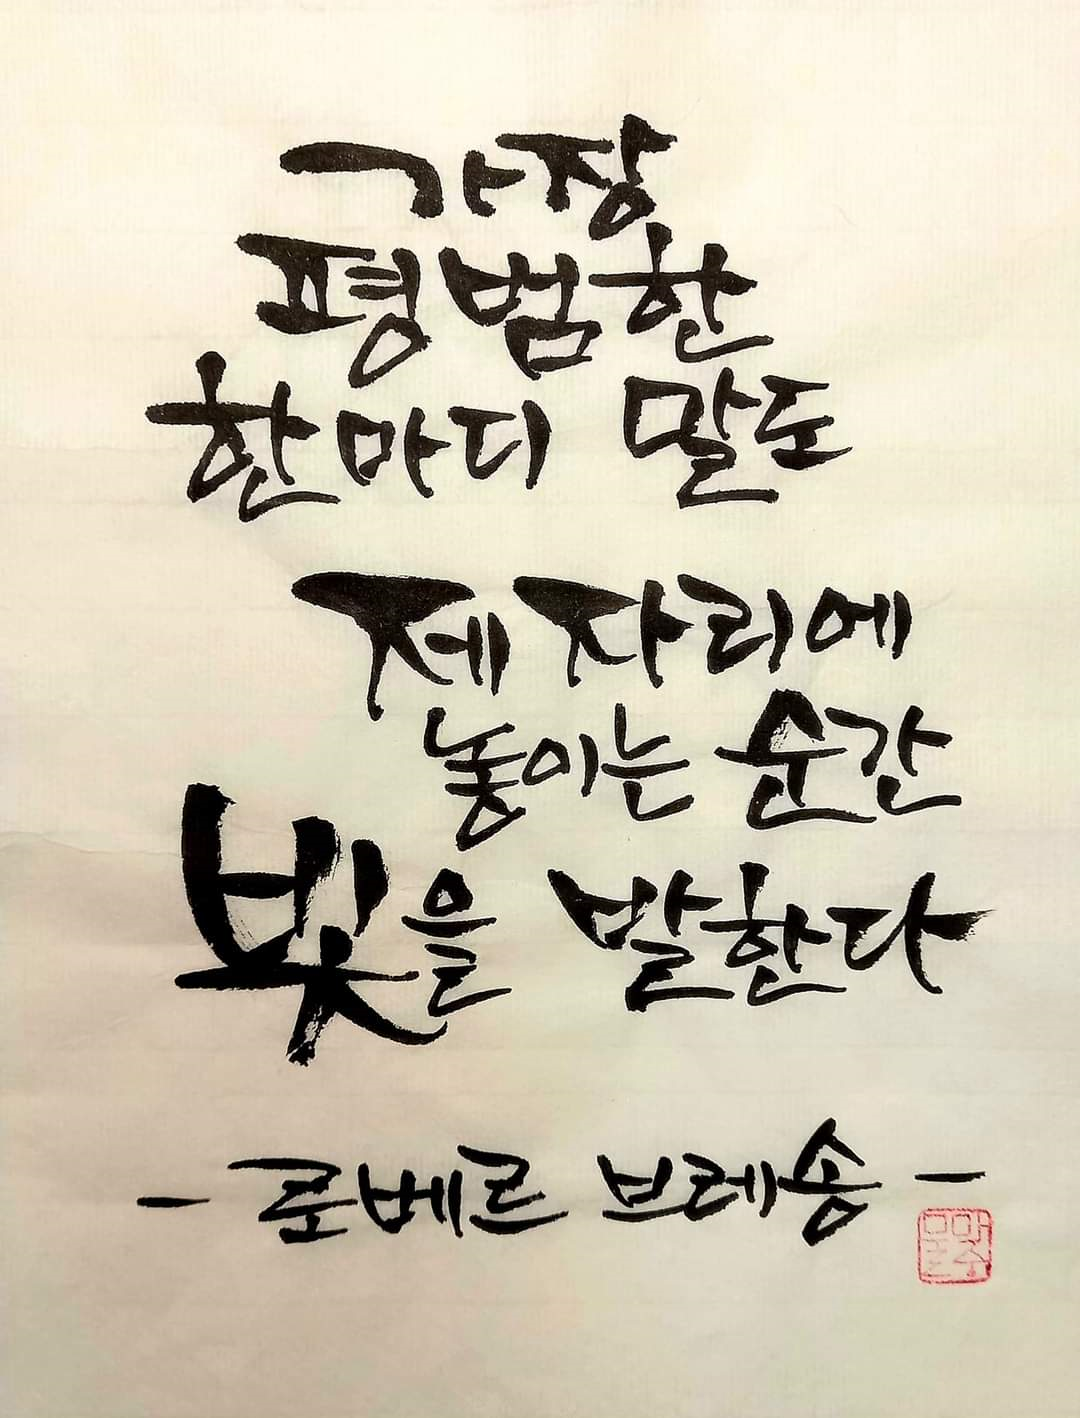 가장
평범한
한마디 말도
제 자리에
놓이는 순간
빛을 발한다
- 로베르 브레송 -